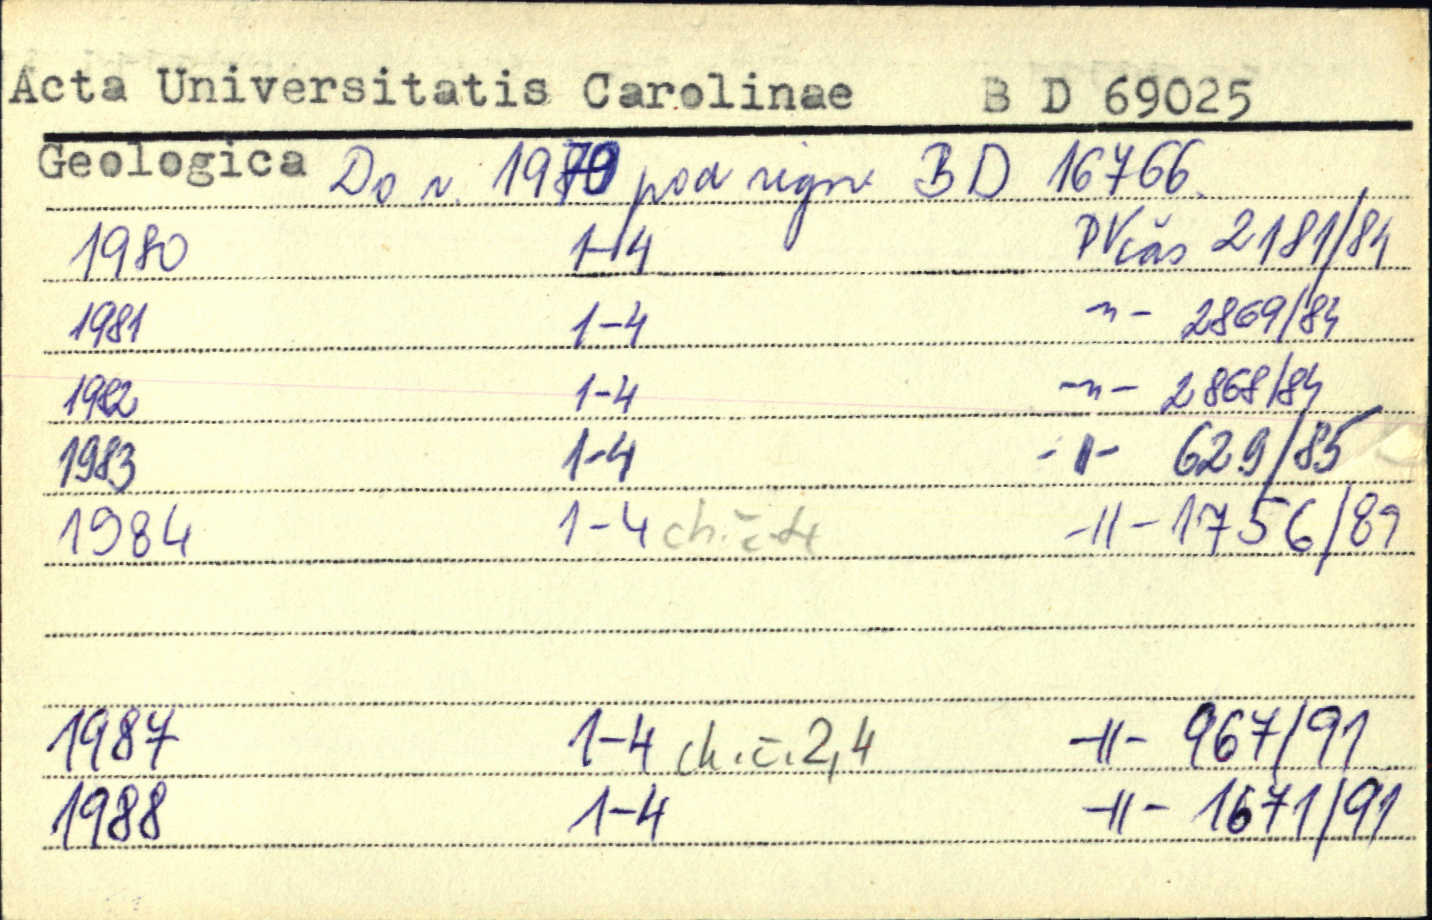 Acta Universitatis Carolinae B D 69025
Geologica Do r. 1979 pod sign. BD 16766.
1980 1-4 PVčas 2181/84
1981 1-4 -"- 2869/84
1982 1-4 -"- 2868/84
1983 1-4 -"- 629/85
1984 1-4 ch.č.4 -"- 1756/89
1987 1-4 ch.č.2,4 -"- 967/91
1988 1-4 -"- 1671/91